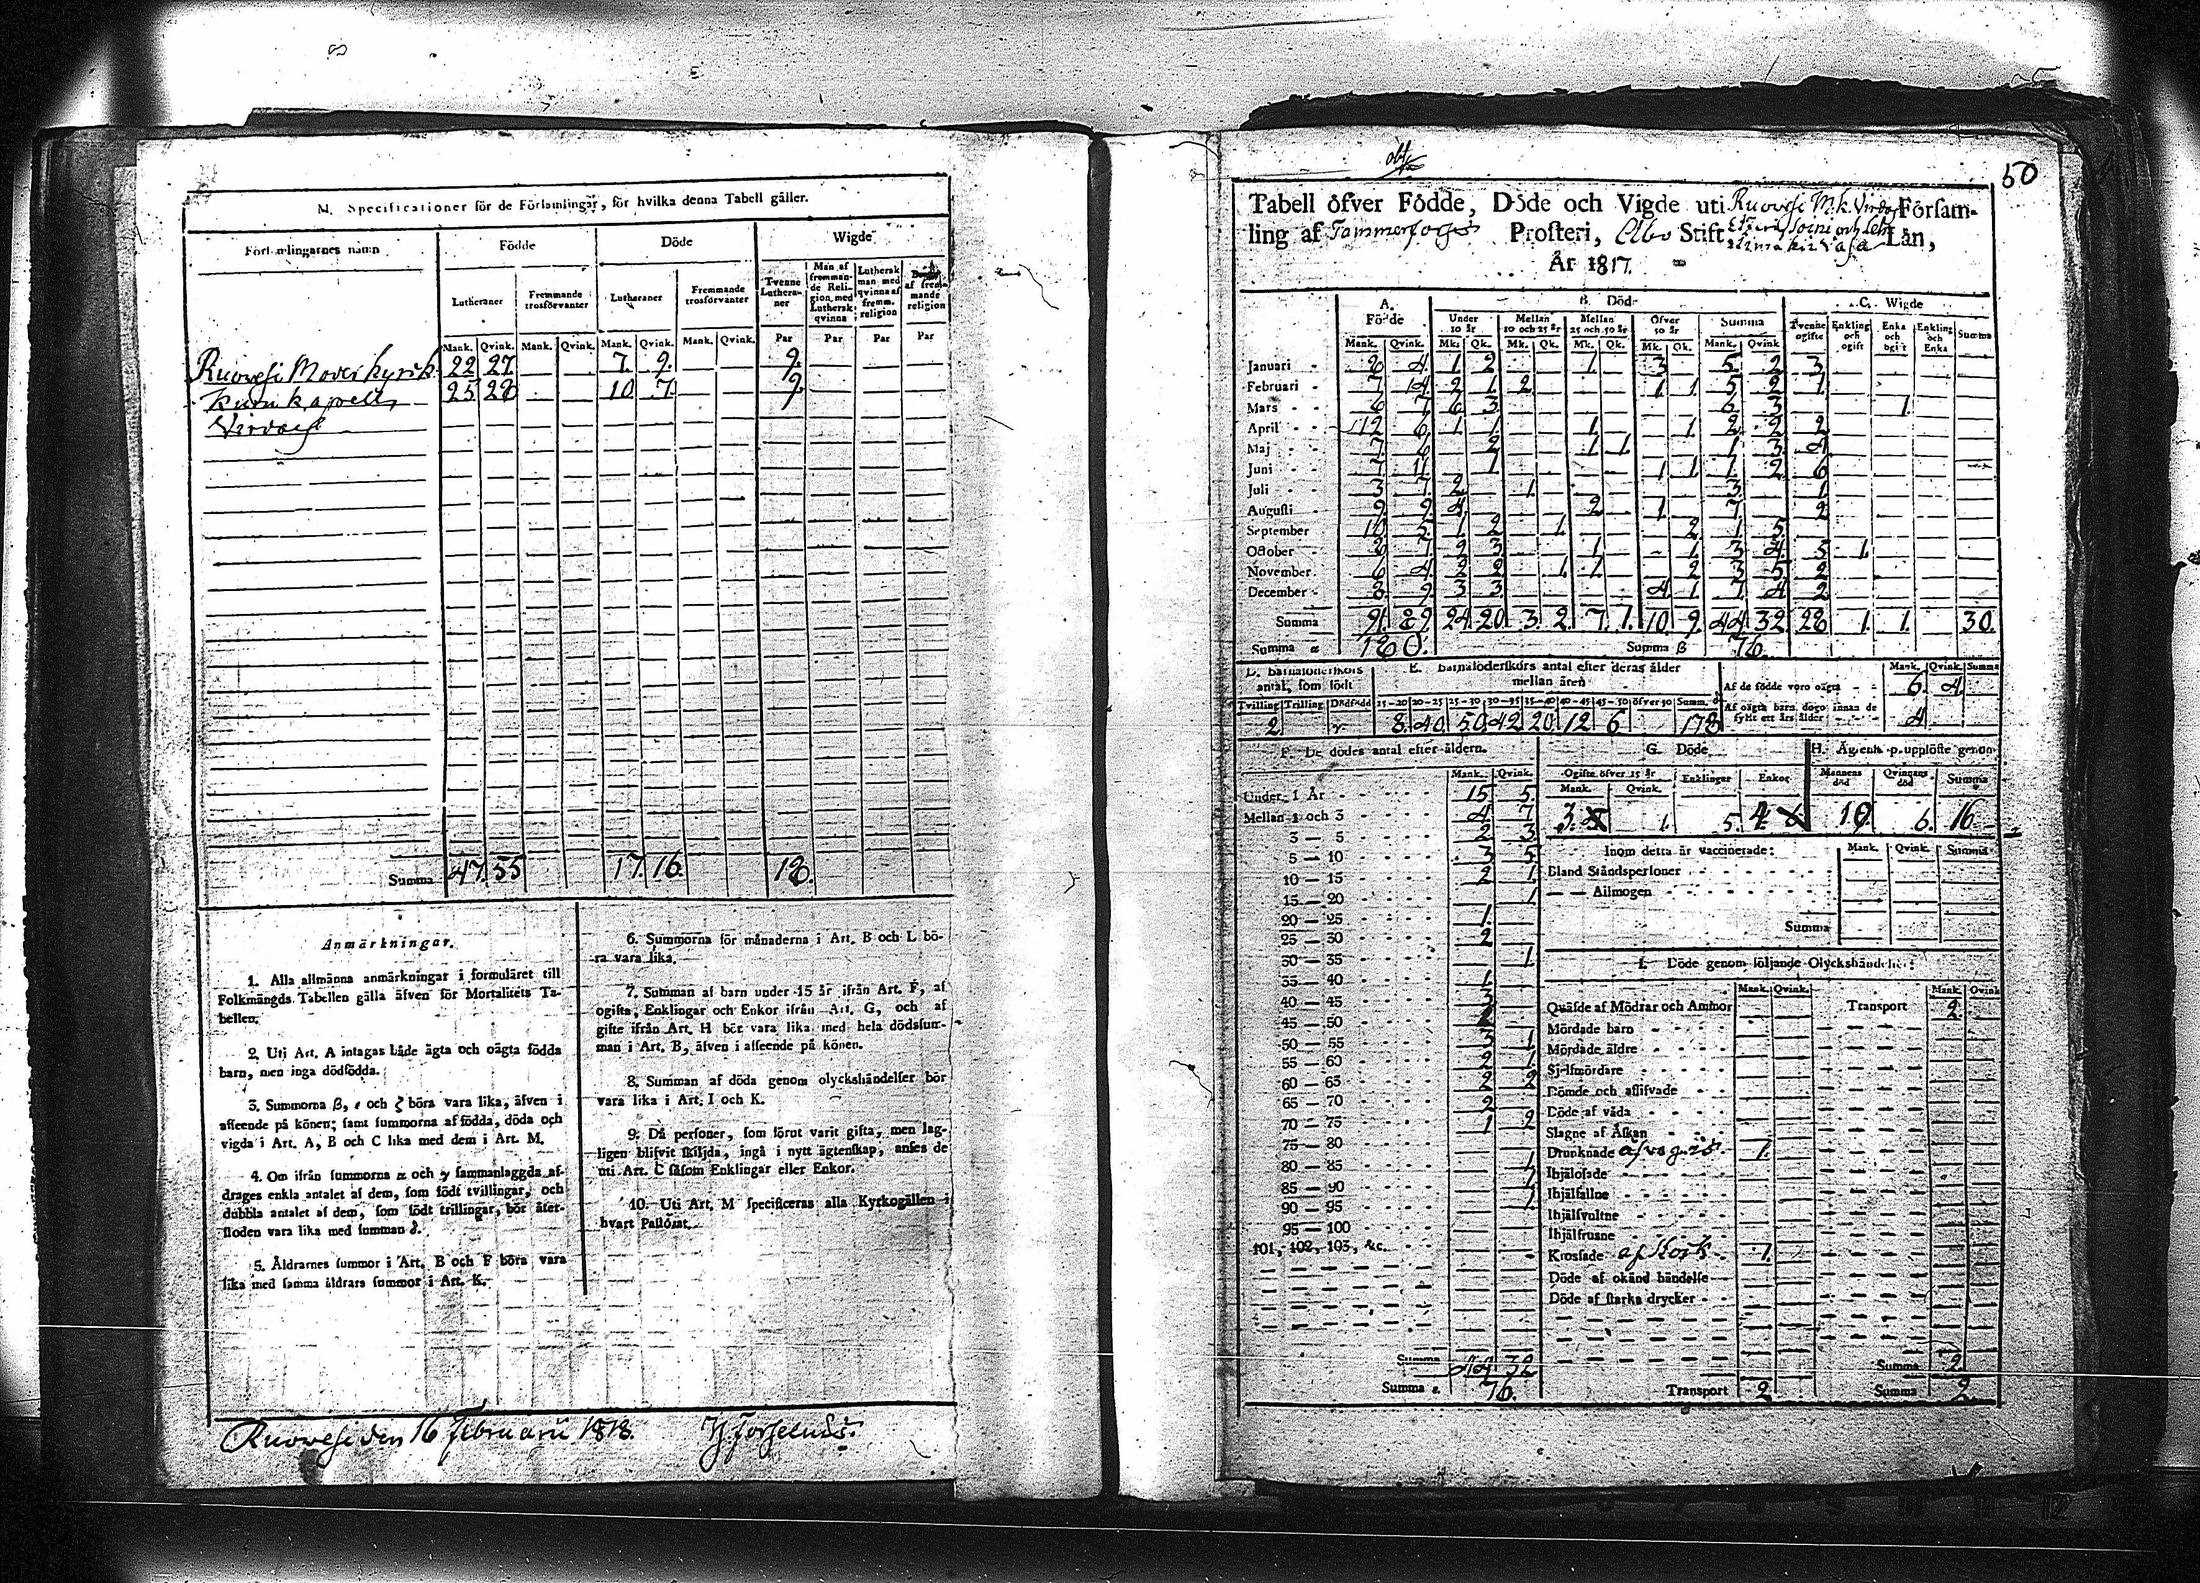 M. Specificationer för de Församlingar, för hvilka denna Tabell gäller.
Församlingarnes namn Födde Döde Wigde
Lutheraner Fremmande trosförvanter Lutheraner Fremmande trosförvanter Tvenne Lutheraner Man af fremmande Religion med Luthersk qvinna Luthersk man med qvinna af fremm. religion af fremmande religion
Mank. Qvink. Mank. Qvink. Mank. Qvink. Mank. Qvink. Par Par Par Par
Ruovesi Moderkyrk 22 27 7. 9. 9.
25 28 10 7. 9
Virdois
Summa 47. 55 17. 16. 18.
Anmärkningar.
1. Alla allmänna anmärkningar i formuläret till
Folkmängds Tabellen gälla äfven för Mortalitets Ta-
bellen.
2. Uti Art. A intagas både ägta och oägta födda
barn, men inga dödfödda.
3. Summorna ß, ε och ζ böra vara lika, äfven i
afseende på könen; samt summorna af födda, döda och
vigda i Art. A, B och C lika med dem i Art. M.
4. Om ifrån summorna α och γ sammanlaggda af-
drages enkla antalet af dem, som födt tvillingar, och
dubbla antalet af dem, som födt trillingar, bör åter-
stoden vara lika med summan δ.
5. Åldrarnes summor i Art. B och F böra vara
lika med samma åldrars summor i Art. K.
6. Summorna för månaderna i Art. B och L bö-
ra vara lika.
7. Summan af barn under 15 år ifrån Art. F, af
ogifta, Enklingar och Enkor ifrån Art. G, och af
gifte ifrån Art. H bör vara lika med hela dödssum-
man i Art. B, äfven i afseende på könen.
8. Summan af döda genom olyckshändelser bör
vara lika i Art. I och K.
9. Då personer, som förut varit gifta, men lag-
ligen blifvit skiljda, ingå i nytt ägtenskap, anses de
uti Art. C såsom Enklingar eller Enkor.
10. Uti Art. M specificeras alla Kyrkogällen i
hvart Pastorat.
Ruovesi den 16 Februarii 1818.
50
Tabell öfver Födde, Döde och Vigde uti Ruovesi M.k. Virdois Försam-
ling af Tammerfors Prosteri, Åbo Stift Län,
År 1817.
A. Födde B. Döde C. Wigde
Under 10 år Mellan 10 och 25 år Mellan 25 och 50 år Öfver 50 år Summa Tvenne ogifte Enkling och ogift Enka och ogift Enkling och Enka Summa
Mank. Qvink. Mk. Qk. Mk. Qk. Mk. Qk. Mk. Qk. Mank. Qvink.
Januari 8 4 1 2 1 3 5 2 3
Februari 7 14 2 1 2 1 1 5 2 1
Mars 6 7 6 3 6 3 1
April 12 6 1 1 1 1 2 2 2
Maj 7 6 2 1 1 1 3 4
Juni 7 11 1 1 1 1 2 6
Juli 3 1 2 1 3 1
Augusti 9 9 4 2 1 7 2
September 10 5 1 2 1 2 1 5
October 8 7 2 3 1 1 3 4 5 1
November 6 4 2 2 1 1 2 3 5 2
December 8 9 3 3 4 1 7 4 2
Summa 91. 89 24 20 3. 2. 7. 1. 10. 9. 44 32 28 1. 1. 30.
Summa α 180. Summa ß 76.
D. Barnaföderskors antal, som födt
Tvilling Trilling Dödfödd
2
E. Barnaföderskors antal efter deras ålder mellan åren
15-20 20-25 25-30 30-35 35-40 40-45 45-50 öfver 50 Summ. δ
8. 40 50 42 20. 12 6 178
Mank. Qvink. Summa
Af de födde voro oägta 6. 4
Af oägta barn dogo innan de fyllt ett års ålder 4
F. De dödes antal efter åldern.
Mank. Qvink.
Under 1 År 15 5
Mellan 1 och 3 4 7
3 — 5 2 3
5 — 10 3 5
10 — 15 2 1
15 — 20 1
20 — 25 1
25 — 30 2
30 — 35 1
35 — 40 1
40 — 45 3
45 — 50
50 — 55 3 1
55 — 60 2 1
60 — 65 2 2
65 — 70 2
70 — 75 1 2
75 — 80
80 — 85 1
85 — 90 1
90 — 95 1
95 — 100
101, 102, 103, &c.
Summa 44 32
Summa ε. 76.
G. Döde
Ogifte öfver 15 år Enklingar Enkor
Mank. Qvink.
3. 1. 5. 4.
H. Ägtenskap upplöste genom
Mannens död Qvinnans död Summa
10 6. 16
Inom detta år vaccinerade: Mank. Qvink. Summa
Bland Ståndspersoner
— — Allmogen
Summa
I. Döde genom följande Olyckshändelser:
Mank. Qvink. Mank. Qvink.
Quäfde af Mödrar och Ammor Transport 2
Mördade barn
Mördade äldre
Sjelfmördare
Dömde och aflifvade
Döde af våda
Slagne af Åskan
Drunknade 1.
Ihjälofade
Ihjälfallne
Ihjälsvultne
Ihjälfrusne
Krossade af Stock 1.
Döde af okänd händelse
Döde af starka drycker
Summa 2
Transport 2 Summa 2